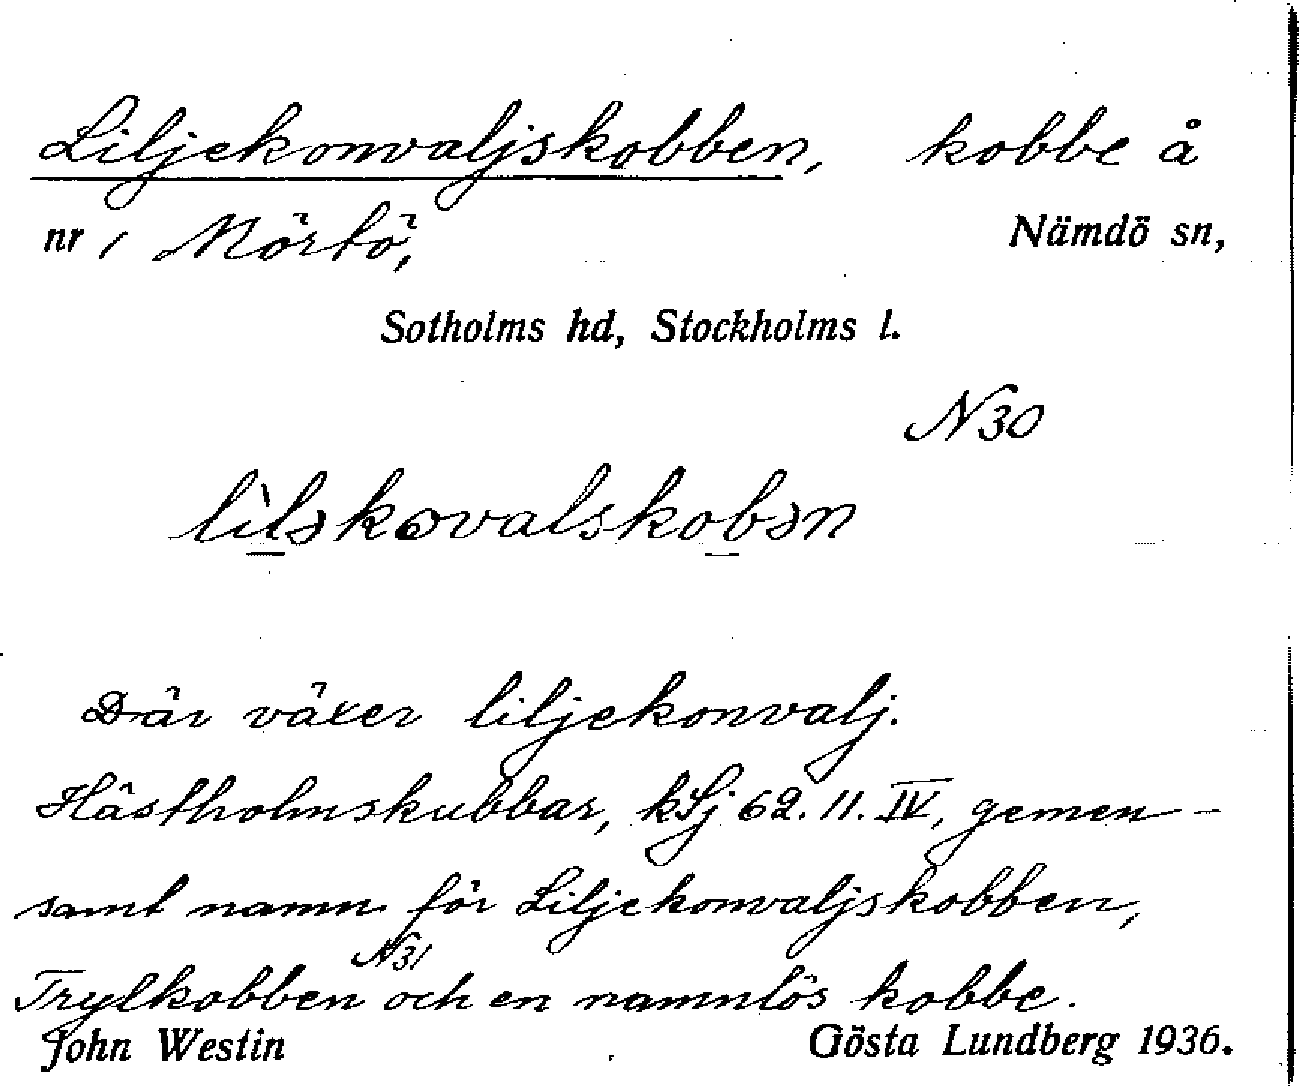 Liljekonvaljskobben, kobbe å
nr 1 Mörtö, Nämdö sn,
Sotholms hd, Stockholms l.
N30
lìləkovalskobən
Där växer liljekonvalj.
Hästholmskubbar, kSj 62.11.IV, gemen-
samt namn för Liljekonvaljskobben,
N31
Trylkobben och en namnlös kobbe.
John Westin Gösta Lundberg 1936.